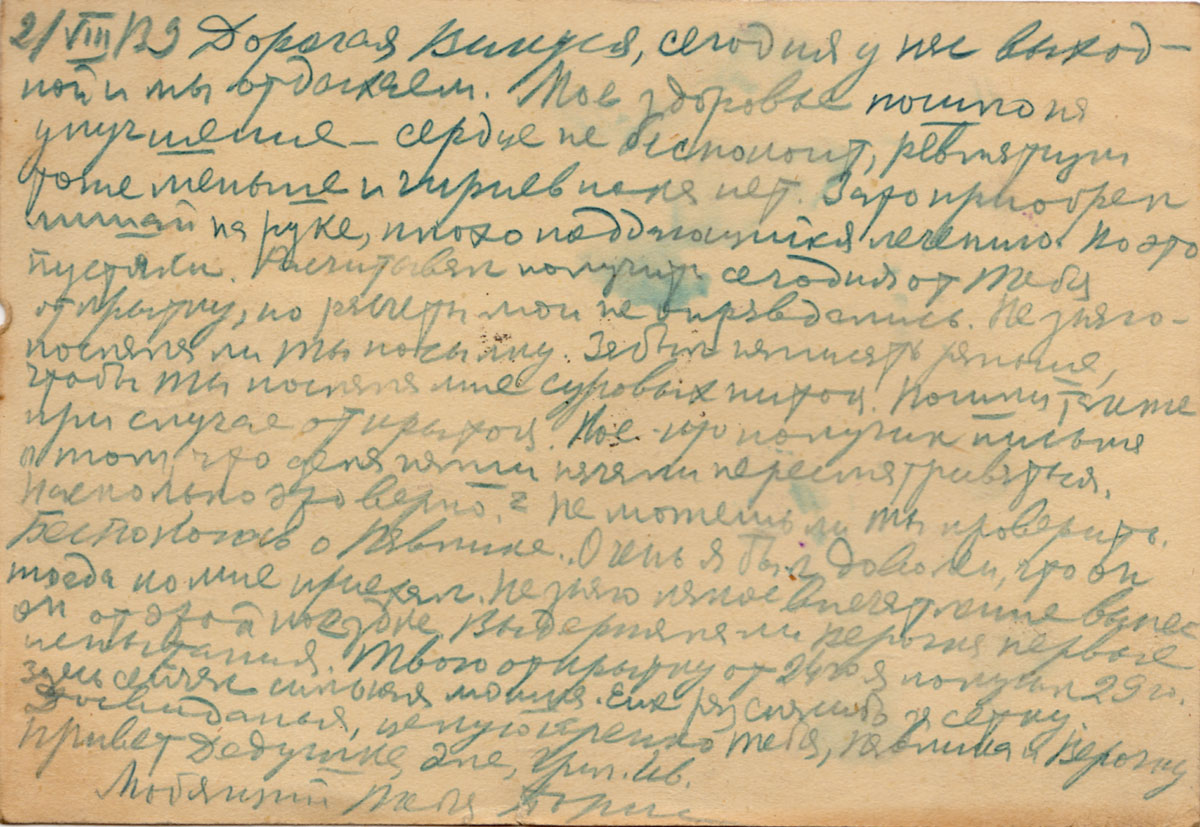 2/VIII/39 Дорогая Винуся, сегодня у нас выход-
ной и мы отдыхаем. Мое здоровье пошло на
улучшение – сердце не беспокоит, ревматизм
тоже меньше и чириев пока нет. Зато приобрел
лишай на руке, плохо поддающийся лечению. Но это
пустяки. Расчитывал получить сегодня от тебя
открытку, но расчеты мои не оправдались. Не знаю –
послала ли ты посылку. Забыл написать раньше,
чтобы ты послала мне суровых ниток. Пошли также
при случае открыток. Кое-кто получил письма
о том, что дела начали пересматриваться.
Насколько это верно? Не можешь ли ты проверить.
Беспокоюсь о Павлике. Очень я был доволен, что он
тогда ко мне приехал. Не знаю какое впечатление вынес
он от этой поездки. Выдержала ли Верочка первые
испытания. Твою открытку от 24го получил 29го.
здесь сейчас сильная. Еще раз спасибо за сетку.
Досвиданья, целую крепко тебя, Павлика и Верочку
Привет Дедушке, Эле, Ив.
Любящий тебя Борис